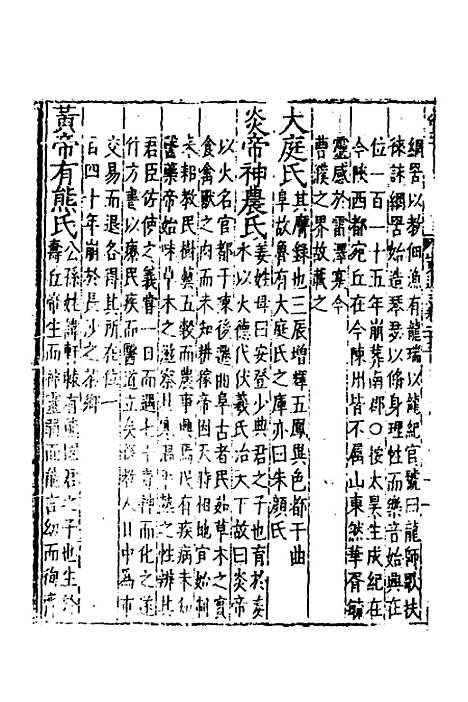 網罟以教佃漁有龍瑞以龍紀官號曰龍師歌扶
徠詠網罟始造琴瑟以脩身理性而樂音始興在
位一百一十五年崩葬南郡○按太昊生成紀在
今陝西都宛丘在今陳州皆不屬山東然華胥毓
靈感於雷澤寔今
曹濮之界故載之
大庭氏其膺錄也三辰增輝五鳳異色都于曲
阜故魯有大庭氏之庫亦曰朱顏氏
炎帝神農氏姜姓母曰安登少典君之子也育於姜
水以火德代伏羲氏治天下故曰炎帝
以火名官都于陳後遷曲阜古者民茹草木之實
食禽獸之肉而未知耕稼帝因天時相地宜始制
耒耜教民樹藝五穀而農事興焉民有疾病未知
醫藥帝始味草木之滋察其溫平熱之性辨其
君臣佐使之義嘗一日而遇七十毒神而化之遂
作方書以療民疾而醫道立矣復教人日中為市
交易而退各得其所在位一
百四十年崩於長沙之茶鄉
黃帝有熊氏公孫姓諱軒轅有熊國君之子也生於
壽丘帝生而神靈弱而能言幼而徇齊